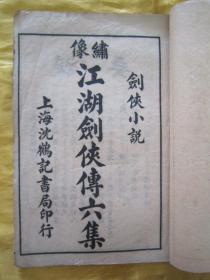 劍俠小說
繡像
江湖劍俠傳六集
上海沈鶴記書局印行